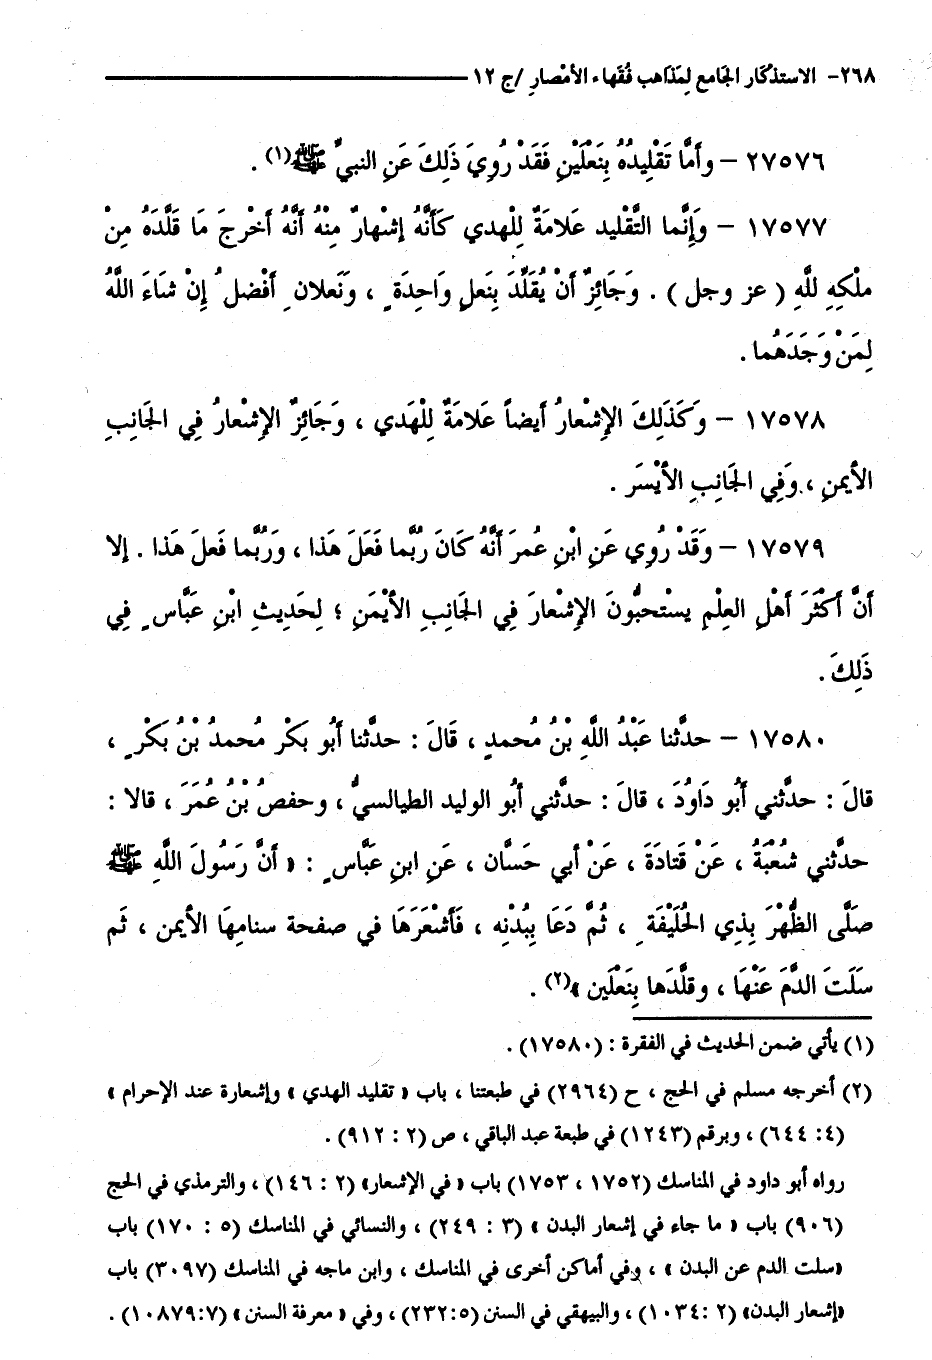 ٢٦٨- الاستذكار الجَامع لِمَذَاهب فُقَهاء الأمْصارِ /ج ١٢
٢٧٥٧٦ – وأَمَّا تَقْلِيدُهُ بِنَعْلَيْنِ فَقَدْ رُوِيَ ذَلِكَ عَنِ النبيِّ ﷺ(١) .
١٧٥٧٧ – وَإِنَّما التَّقْليد عَلامَةٌ لِلْهدي كَأَنَّهُ إشْهارٌ مِنْهُ أَنَّهُ أخْرجَ مَا قَلَّدَهُ مِنْ
ملْكِهِ للَّهِ ( عز وجل ) . وَجَائِزٌ أَنْ يُقَلَّدَ بِنَعلٍ وَاحِدَةٍ ، ونَعلانِ أفْضلُ إِنْ شَاءَ اللَّهُ
لِمَنْ وَجَدَهُما .
١٧٥٧٨ – وَكَذَلِكَ الإشْعارُ أيضاً عَلامَةٌ لِلْهَدي ، وَجَائِزٌ الإشْعارُ فِي الجَانِبِ
الأيمنِ ، وَفِي الجَانِبِ الأيْسَر .
١٧٥٧٩ – وَقَدْ رُوِي عَنِ ابْنِ عُمرَ أنَّهُ كَانَ رُبَّما فَعَلَ هَذا ، وَرُبَّما فَعلَ هَذا . إلا
أنَّ أكْثَرَ أهْلِ العِلْمِ يسْتحبُّونَ الإشْعارَ فِي الجَانِبِ الأيْمَنِ ؛ لِحَديثِ ابْنِ عَبَّاسٍ فِي
ذَلِكَ .
١٧٥٨٠ – حدَّثنا عَبْدُ اللَّهِ بْنُ مُحمدٍ ، قَالَ : حدَّثنا أبُو بَكْر مُحمدُ بْنُ بَكْرٍ ،
قالَ : حدَّثني أبُو دَاوُدَ ، قالَ : حدَّثني أبُو الوليد الطيالسيُّ ، وحفصُ بْنُ عُمَرَ ، قالا :
حدَّثني شُعْبَةُ ، عَنْ قَتادَةَ ، عَنْ أبي حَسَّان ، عَنِ ابنِ عَبَّاسٍ : « أنَّ رَسُولَ اللَّهِ ﷺ
صَلَّى الظُّهْرَ بِذِي الحُلَيْفَةِ ، ثُمَّ دَعَا بِبُدْنِه ، فَأَشْعَرَهَا في صفحة سنامِهَا الأيمن ، ثَم
سَلَتَ الدَّمَ عَنْهَا ، وقلَّدَها بِنَعْلَين »(٢) .
(١) يأتي ضمن الحديث في الفقرة : (١٧٥٨٠) .
(٢) أخرجه مسلم في الحج ، ح (٢٩٦٤) في طبعتنا ، باب « تقليد الهدي » وإشعارة عند الإحرام »
(٤: ٦٤٤) ، وبرقم (١٢٤٣) في طبعة عبد الباقي ، ص (٢ : ٩١٢) .
رواه أبو داود في المناسك (١٧٥٢ ، ١٧٥٣) باب « في الإشعار» (٢ : ١٤٦) ، والترمذي في الحج
(٩٠٦) باب « ما جاء في إشعار البدن » (٣ : ٢٤٩) ، والنسائي في المناسك (٥ : ١٧٠) باب
«سلت الدم عن البدن » ، وفي أماكن أخرى في المناسك ، وابن ماجه في المناسك (٣٠٩٧) باب
«إشعار البدن» (٢ :١٠٣٤) ، والبيهقي في السنن (٢٣٢:٥) ، وفي « معرفة السنن » (١٠٨٧٩:٧) .